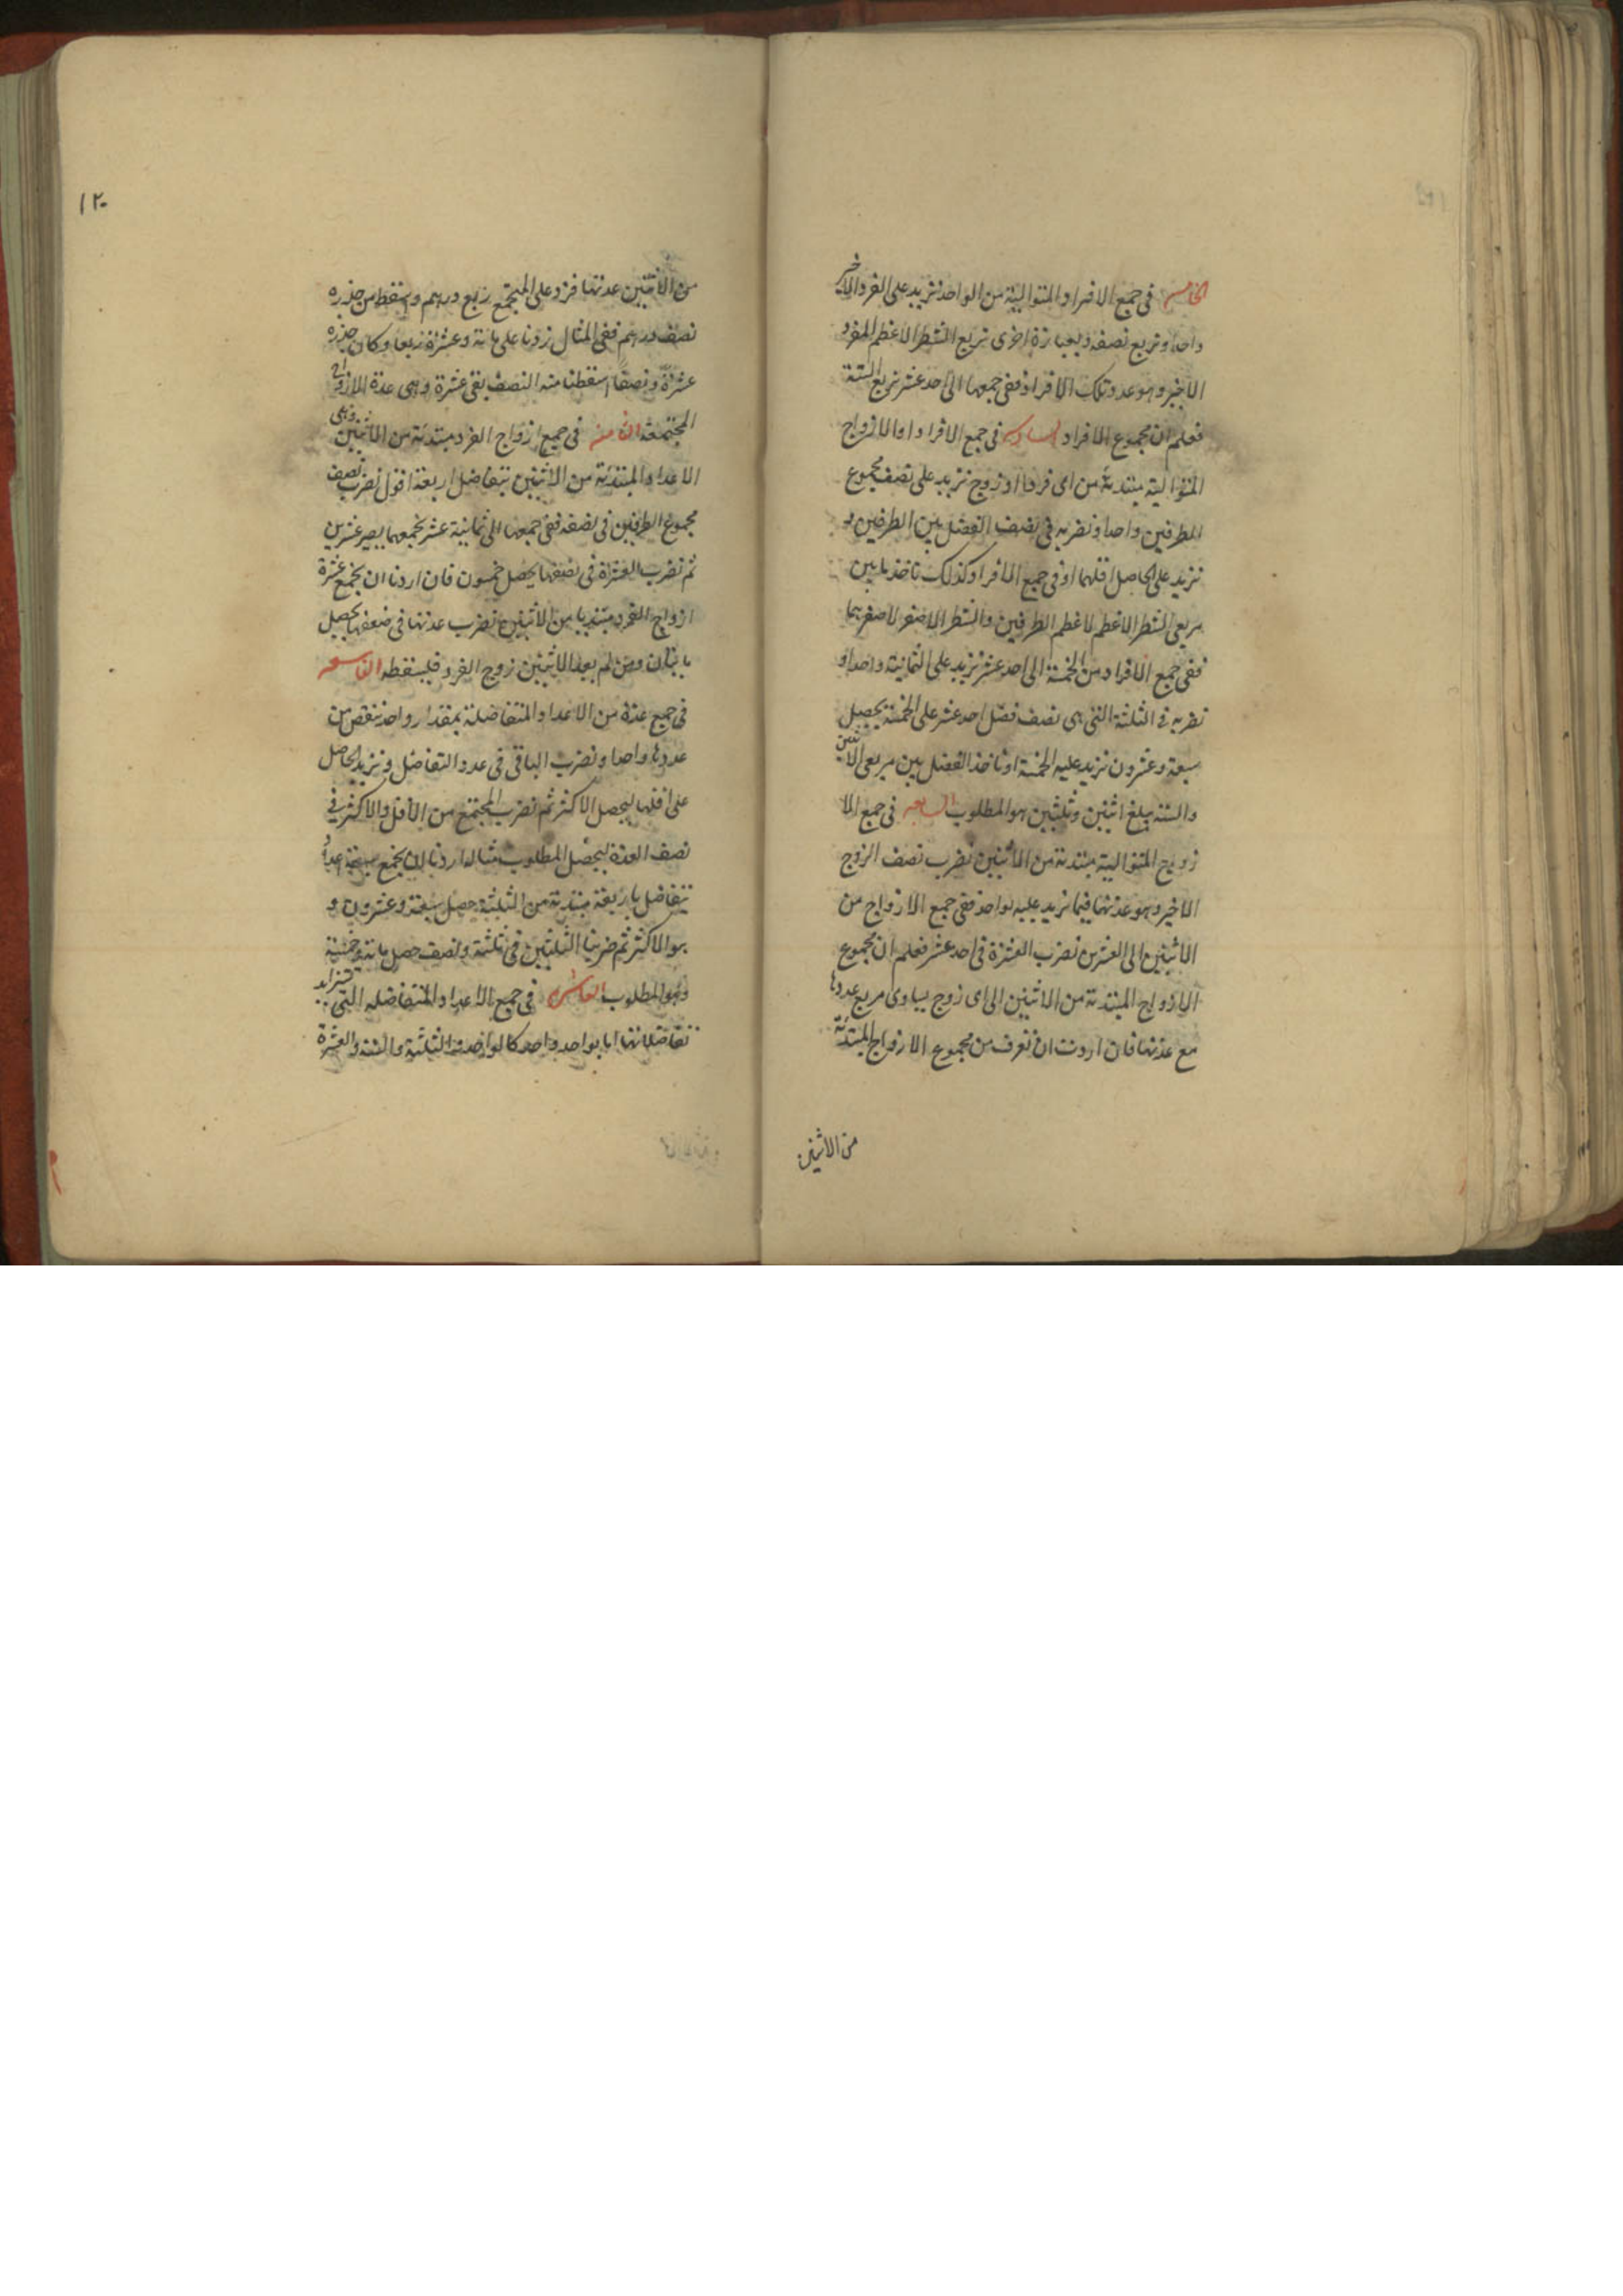 الخامسة فى جمع الافراد المتوالية من الواحد نزيد على الفرد الاخير
واحدا ونربع نصفه وبعبارة اخرى نربع الشطر الاعظم للفرد
الاخير وهو عدد تلك الافراد ففى جمعها الى احد عشر نربع الستة
فعلم ان مجموع الافراد السادسة فى جمع الافراد او الازواج
المتوالية مبتدئة من اى فرد او زوج نزيد على نصف مجموع
الطرفين واحدا ونضربه فى نصف الفضل بين الطرفين و
نزيد على الحاصل اقلهما او فى جمع الافراد كذلك ناخذ ما بين
مربعى الشطر الاعظم لاعظم الطرفين والشطر الاصغر لاصغرهما
ففى جمع الافراد من الخمسة الى احد عشر نزيد على الثمانية واحدا و
نضربه فى الثلثة التى هى نصف فضل احد عشر على الخمسة يحصل
سبعة وعشرون نزيد عليه الخمسة او ناخذ الفضل بين مربعى الاثنين
والستة يبلغ اثنين وثلثين هو المطلوب السابعة فى جمع الا
زواج المتوالية مبتدئة من الاثنين نضرب نصف الزوج
الاخير وهو عدتها فيما نزيد عليه بواحد ففى جمع الازواج من
الاثنين الى العشرين نضرب العشرة فى احد عشر فعلم ان مجموع
الازواج المبتدئة من الاثنين الى اى زوج يساوى مربع عددها
مع عدتها فان اردت ان تعرف من مجموع الازواج المبتدئة
من الاثنين
١٢٠
من الاثنين عدتها فزد على المجتمع ربع درهم واسقط من جذره
نصف درهم ففى المثال زدنا على مائة وعشرة ربعا وكان جذره
عشرة ونصفا اسقطنا منه النصف بقى عشرة وهى عدة الازواج
المجتمعة الثامنة فى جميع ازواج الفرد مبتدئة من الاثنين وهى
الاعداد المبتدئة من الاثنين بتفاضل اربعة اقول نضرب نصف
مجموع الطرفين فى نصفه ففى جمعها الى ثمانية عشر نجمعهما يصير عشرين
ثم نضرب العشرة فى نصفها يحصل خمسون فان اردنا ان نجمع عشرة
ازواج الفرد مبتديا من الاثنين نضرب عدتها فى ضعفها يحصل
مائتان ومن لم يعد الاثنين زوج الفرد فليسقطه التاسعة
فى جمع عدة من الاعداد المتفاضلة بمقدار واحد ننقص من
عددها واحدا ونضرب الباقى فى عدد التفاضل ونزيد الحاصل
على اقلها ليحصل الاكثر ثم نضرب المجتمع من الاقل والاكثر فى
نصف العدة ليحصل المطلوب مثاله اردنا ان نجمع سبعة اعداد
تتفاضل باربعة مبتدئة من الثلثة حصل سبعة وعشرون و
هو الاكثر ثم ضربنا الثلثين فى ثلثة ونصف حصل مائة وخمسة
وهو المطلوب العاشرة فى جمع الاعداد المتفاضلة التى تتزايد
تفاضلاتها اما بواحد واحد كالواحد والثلثة والستة والعشرة